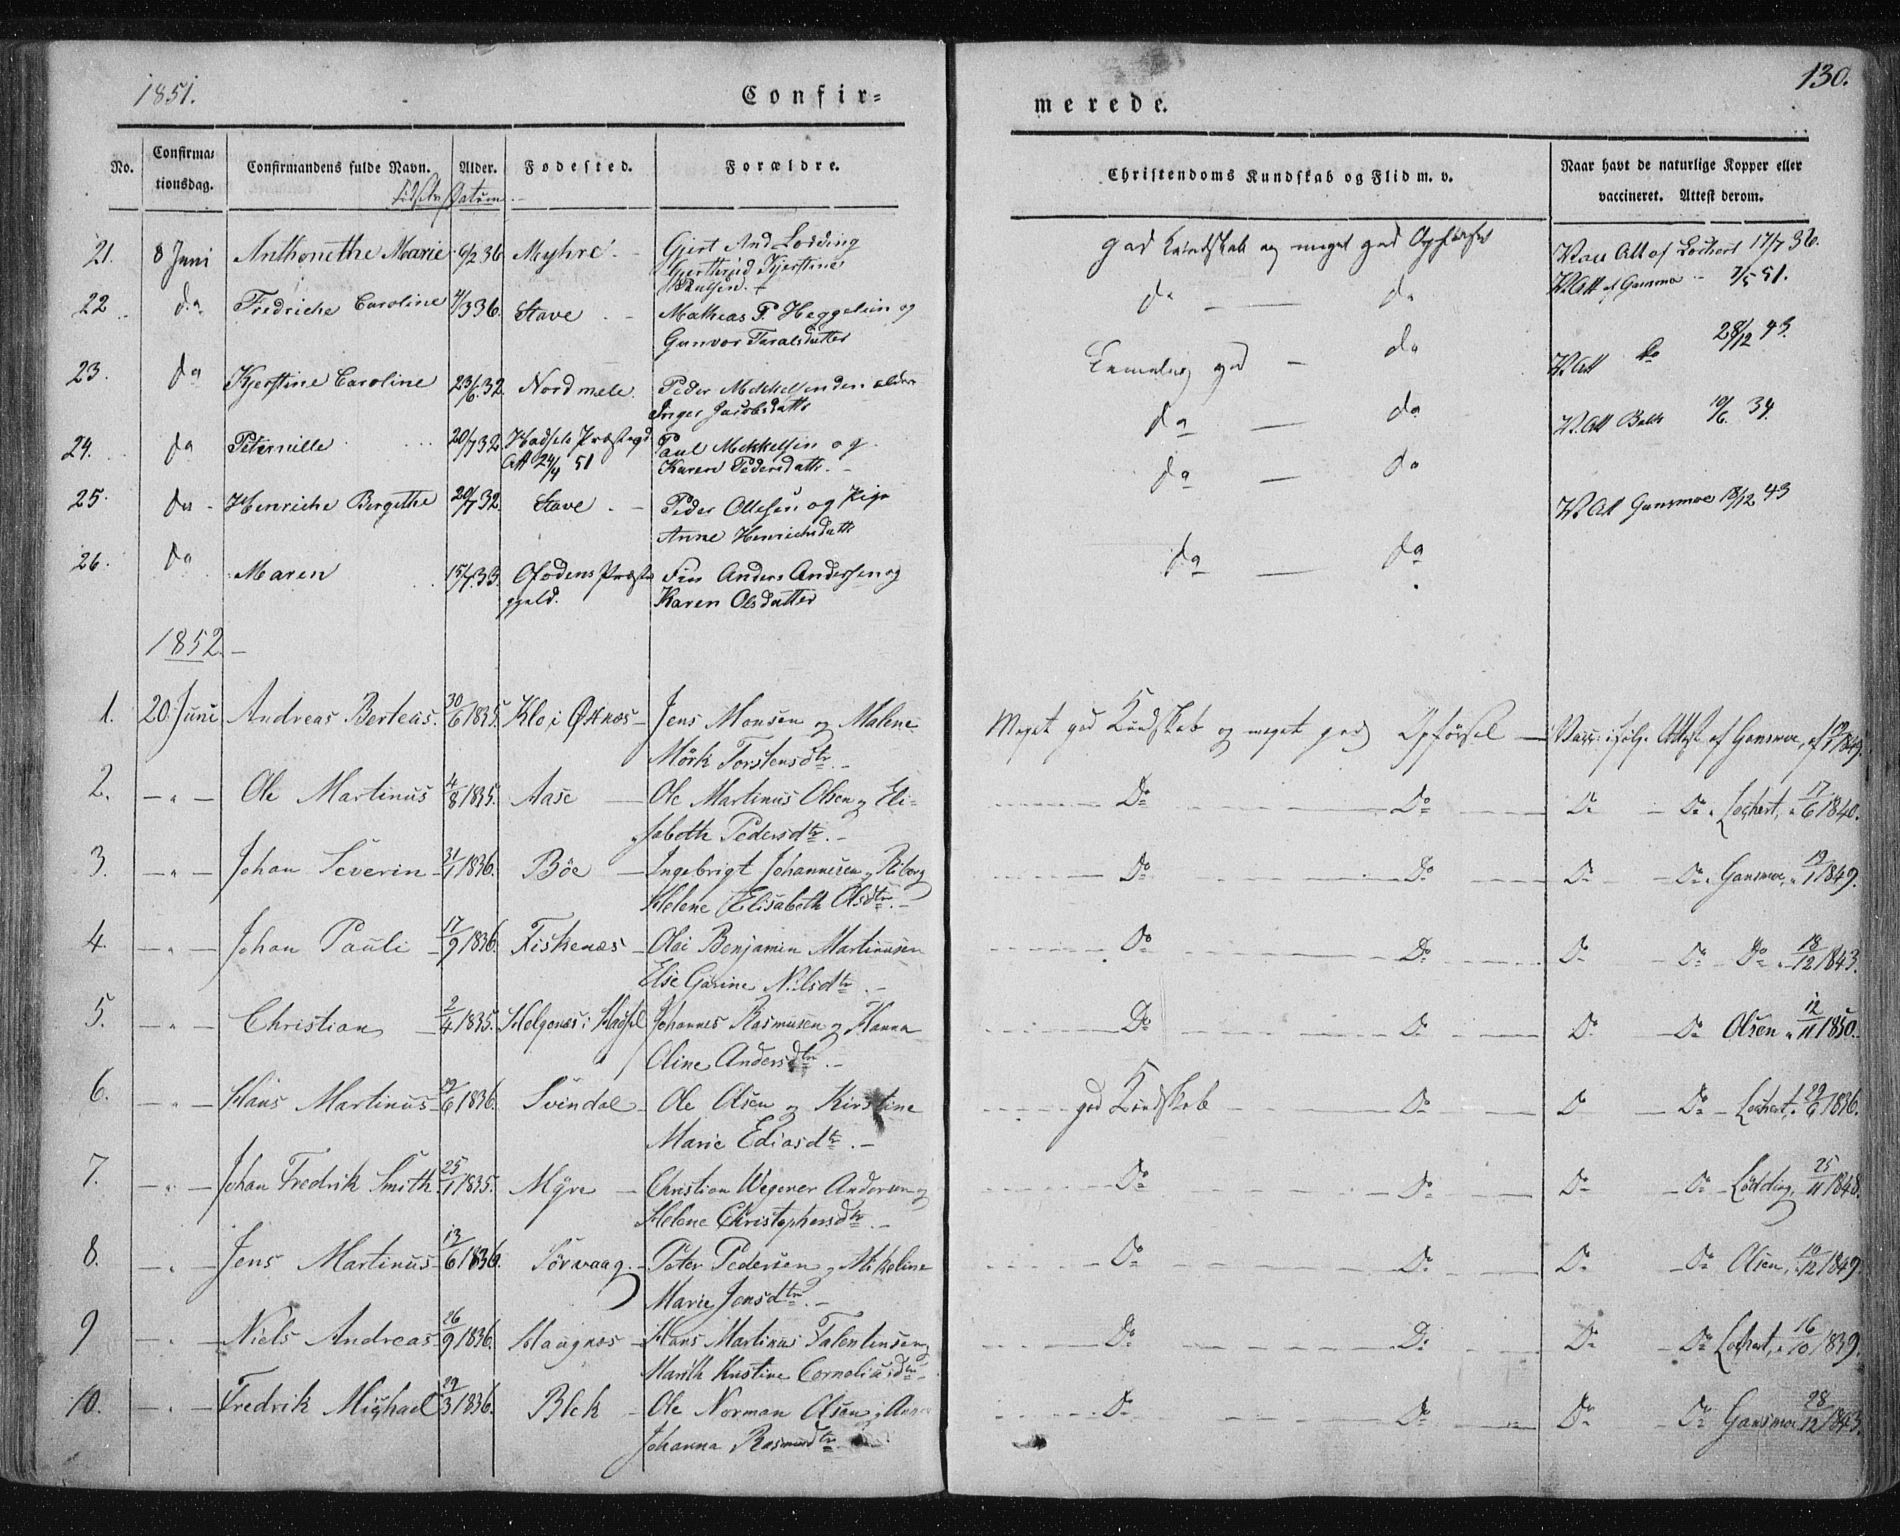 1851.
Confir=
merede.
130.
No.
Confirma=
tionsdag.
Confirmandens fulde Navn.
Alder.
Fødselsdatum
Fødested.
Forældre.
Christendoms Kundskab og Flid m. v.
Naar havt de naturlige Kopper eller
vaccineret. Attest derom.
21. 8 Juni Anthonethe Marie 6/2 36 Myhre. Giert And Lording god Kundskab og meget god Opførsel Vacc Att af Lochert 17/7 36.
Giertrud Kjerstine
22 do Fredriche Caroline 4/3 36. Stave Mathias P. Heggelun og do do V. Att af Gansmo 7/5 51.
Gunvor Taralsdatter
23. do Kjerstine Caroline 23/6. 32. Nordmele. Peder Mekkelsen den ældre god do V. Att do 28/12 43.
Inger Jacobsdattr
24. do Peternille 20/7 32 Hadsels Præstegd Paul Mekkelsen og do do V. Att 10/6. 34.
Att 24/4 51 Karen Pedersdattr.
25. do Henriche Bergithe 20/7 32. Stave Peder Ottesen og Pige do do V. Att Gansmoe 18/12 43
Anne Henrichsdattr
26. do Maren 15/7. 33 Ofodens Præste Fin Anders Andersen og do do
gjeld. Karen Olsdatter
1852.
1. 20. Juni Andreas Berteas. 30/6 1835. Klo i Øknæs Jens Monsen og Malene Meget god Kundskab og meget god Opførsel Vacc: ifølge Attest af Gansmoe, af 19/1 1849.
Mörk Torstensdtr.
2. Ole Martinus 4/8 1835. Aase Ole Martinus Olsen og Eli- Do Do Do Do Lochert, 17/6 1840.
sabeth Pedersdtr.
3. Johan Severin 31/1 1836. Böe Ingebrigt Johannesen og Do Do Do Do Gansmoe, 19/1 1849.
Helene Elisabeth Olsdtr.
4. Johan Pauli 17/9 1836. Fiskenæs Oloi Benjamin Martinusen Do Do Do Do Do 18/12 1843.
Else Garine Nilsdtr.
5. Christian 2/4 1835. Helgenæs i Hadsel Johannes Rasmusen og Hanna Do Do Do Do Olsen 12/11 1850.
Oline Andersdtr.
6. Hans Martinus 6 1836. Svindal Ole Olsen og Kirstine god Kundskab Do Do Do Lochert, 29/6 1836.
Marie Ediasdtr.
7. Johan Fredrik Smith 25/1 1835. Mÿre Christian Wegener Andersen og Do Do Do Do Lödding, 25/11 1848.
Helene Christophersdtr.
8. Jens Martinus 13/6 1836 Sörvaag. Peter Pedersen og Mikeline Do Do Do Do Olsen, 10/12 1849.
Marie Jensdtr.
9 Niels Andreas 26/9 1836. Haugnæs Hans Martinus Falentinsen og Do Do Do Do Lochert, 16/10 1839.
Marith Kirstine Corneliusdtr.
10. Fredrik Michael 29/3 1836. Blek Ole Norman Olsen og Anne Do Do Do Do Gansmoe 28/12 1843.
Johanna Rasmusdtr